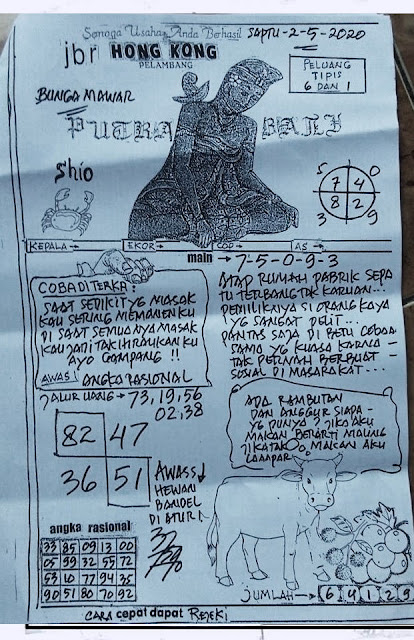 Semoga Usaha Anda Berhasil
SAPTU-2-5-2020
jbr HONG KONG
PELAMBANG
PELUANG
TIPIS
6 DAN 1
BUNGA MAWAR
PUTRA BALI
Shio
5 0
7 4
8 2
3 9
KEPALA EKOR COP AS
main 7-5-0-9-3
COBA DI TERKA:
SAAT SEDIKIT YG MASAK
KAU SERING MEMANENKU
DI SAAT SEMUANYA MASAK
KAU JADI TAK HIRAUKAN KU
AYO GAMPANG !!
AWAS ANGKA RASIONAL
ATAP RUMAH PABRIK SEPA
TU TERBANG TAK KARUAN...
PEMILIKNYA SI ORANG KAYA
YG SANGAT PELIT...
PANTAS SAJA DI BERI COBAA
SAMO YG KUASA KARNA -
TAK PERNAH BERBUAT -
SOSIAL DI MASARAKAT...
JALUR UANG 73,19,56
02,38
82 47
36 51
AWASS
HEWAN
BANDEL
DI ATUR
ADA RAMBUTAN
DAN ANGGUR SIAPA -
YG PUNYA? JIKA AKU
MAKAN BERARTI MALING
JIKA TAK MAKAN AKU
LAAAPAR
angka rasional
33 85 09 13 00
05 99 32 55 72
53 10 77 94 35
90 51 80 70 92
JUMLAH 6 4 1 2 9
CARA cepat dapat REJEKI